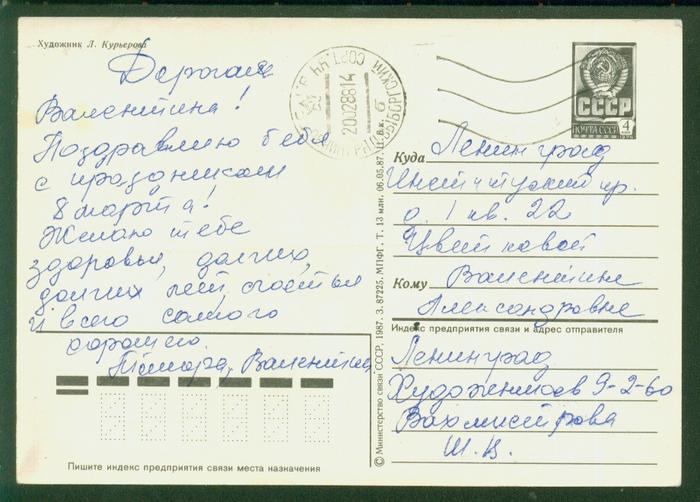 Художник Л. Курьерова
Дорогая
Валентина!
Поздравляю тебя
с праздником
8 марта!
Желаю тебе
здоровья, долгих,
долгих лет, счастья
и всего самого
хорошего.
Тамара, Валентин
Пишите индекс предприятия связи места назначения
© Министерство связи СССР. 1987. З. 87225. МПФГ. Т. 13 млн. 06.05.87. Ц. 6 к.
200288 14
СССР
ПОЧТА СССР
4
Куда Ленинград
Институтский пр.
д. 1 кв. 22
Цветковой
Кому Валентине
Александровне
Индекс предприятия связи и адрес отправителя
Ленинград
Художников 9-2-60
Вахмистрова